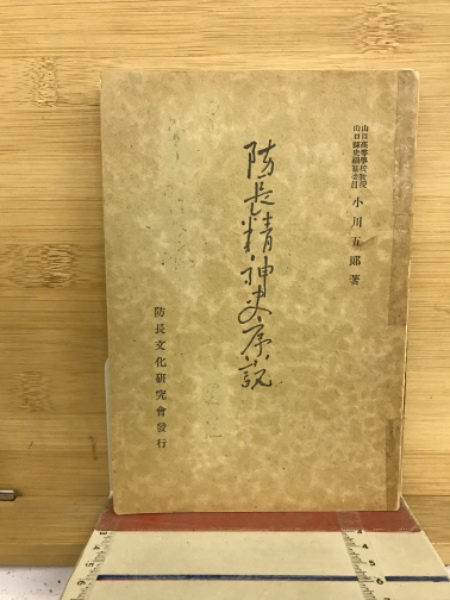 山口高等學校教授
山口縣史編纂委員
小川五郎著
防長精神史序説
防長文化研究會發行